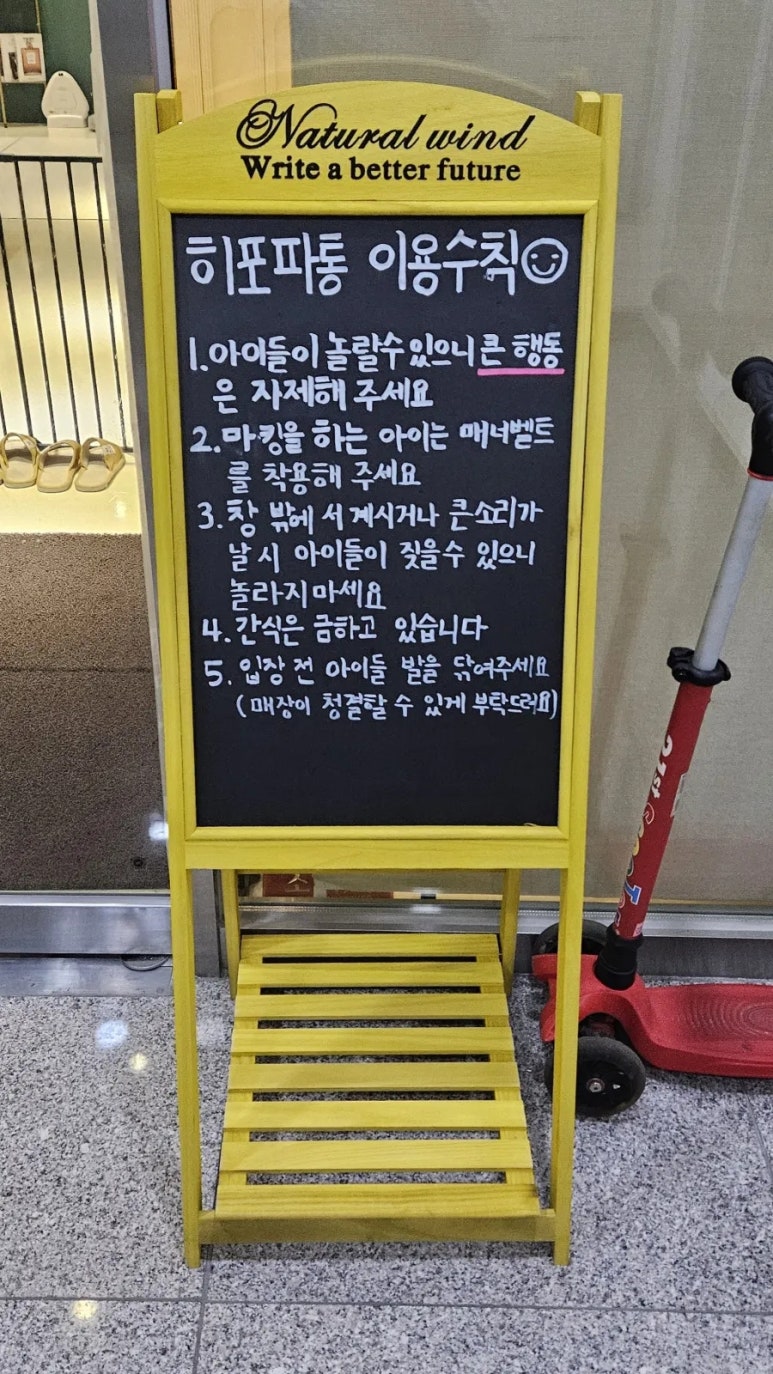 Natural wind
Write a better future
히포파통 이용수칙
1. 아이들이 놀랄수 있으니 큰 행동
은 자제해 주세요
2. 마킹을 하는 아이는 매너벨트
를 착용해 주세요
3. 창 밖에 서 계시거나 큰소리가
날 시 아이들이 짖을수 있으니
놀라지마세요
4. 간식은 금하고 있습니다
5. 입장 전 아이들 발을 닦여주세요
(매장이 청결할 수 있게 부탁드려요)
21st